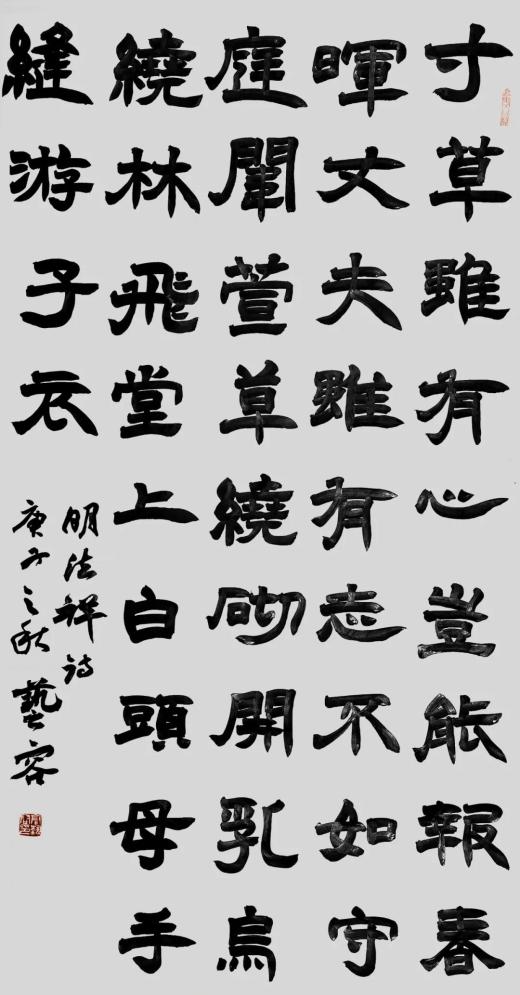 寸草雖有心豈能報春
暉丈夫雖有志不如守
庭闈萱草繞砌開乳烏
繞林飛堂上白頭母手
縫游子衣
明法禪詩
庚子之秋藝容